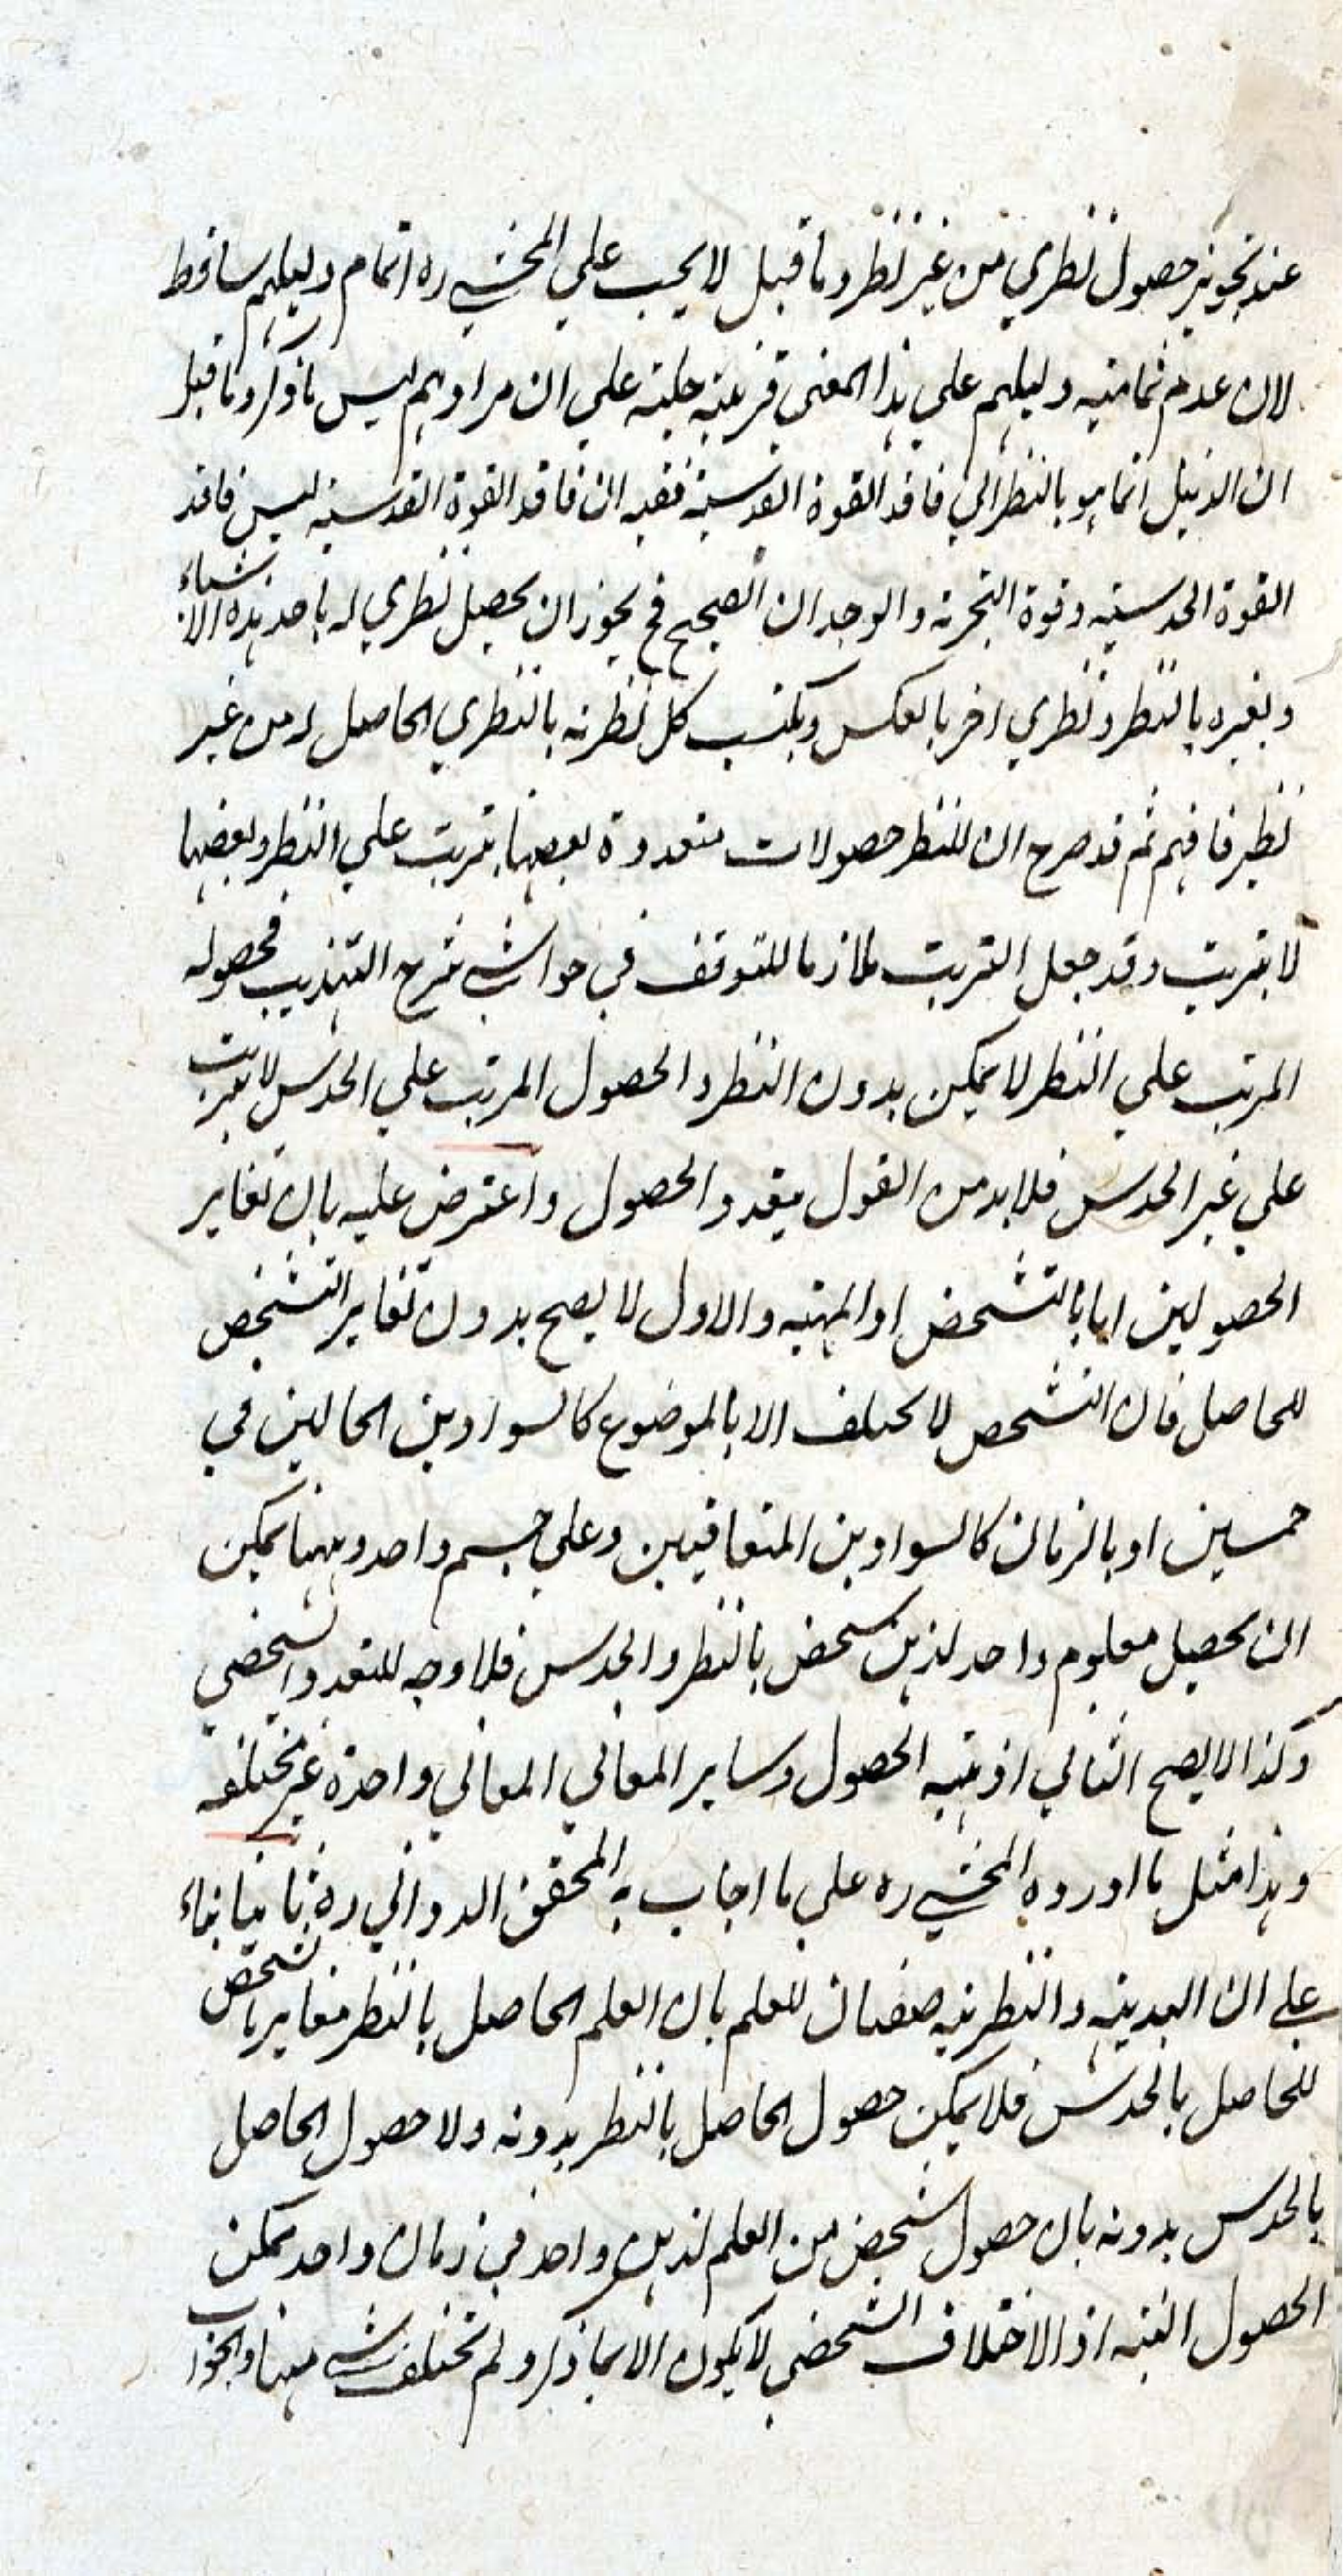 عند تجويز حصول نظري من غير نظر وما قيل لا يجب على المحشي ره اتمام دليلهم ساقط
لان عدم تمامية دليلهم على هذا المعنى قرينة جلية على ان مرادهم ليس ما ذكر وما قيل
ان الدليل انما هو بالنظر الى فاقد القوة القدسية ففيه ان فاقد القوة القدسية ليس فاقد
القوة الحدسية وقوة التجربة والوجدان الصحيح فح يجوز ان يحصل نظري له باحد هذه الاشياء
وبغيره بالنظر ونظري اخر بالعكس ويكتسب كل نظرية بالنظري الحاصل له من غير
نظر فافهم ثم قد صرح ان للنظر حصولات متعددة بعضها يترتب على النظر وبعضها
لا يترتب وقد جعل الترتب ملازما للتوقف في حواشي شرح التهذيب فحصوله
المرتب على النظر لا يمكن بدون النظر والحصول المرتب على الحدس لا يترتب
على غير الحدس فلا بد من القول بتعدد الحصول واعترض عليه بان تغاير
الحصولين اما بالتشخص او المهية والاول لا يصح بدون تغاير التشخص
للحاصل فان التشخص لا يختلف الا بالموضوع كالسوادين الحالين في
جسمين او بالزمان كالسوادين المتعاقبين وعلى جسم واحد وههنا يمكن
ان يحصل معلوم واحد لذهن شخص بالنظر والحدس فلا وجه للتعدد الشخصي
وكذا لا يصح الثاني اذ مهية الحصول وساير المعاني المعاني واحدة غير مختلفة
وهذا مثل ما اورده المحشي ره على ما اجاب به المحقق الدواني ره ثانيا بناء
على ان البديهية والنظرية صفتان للعلم بان العلم الحاصل بالنظر مغاير بالشخص
للحاصل بالحدس فلا يمكن حصول الحاصل بالنظر بدونه ولا حصول الحاصل
بالحدس بدونه بان حصول شخص من العلم لذهن واحد في زمان واحد ممكن
الحصول البتة اذ الاختلاف الشخصي لا يكون الا بما ذكر ولم تختلف شي ههنا والجواب